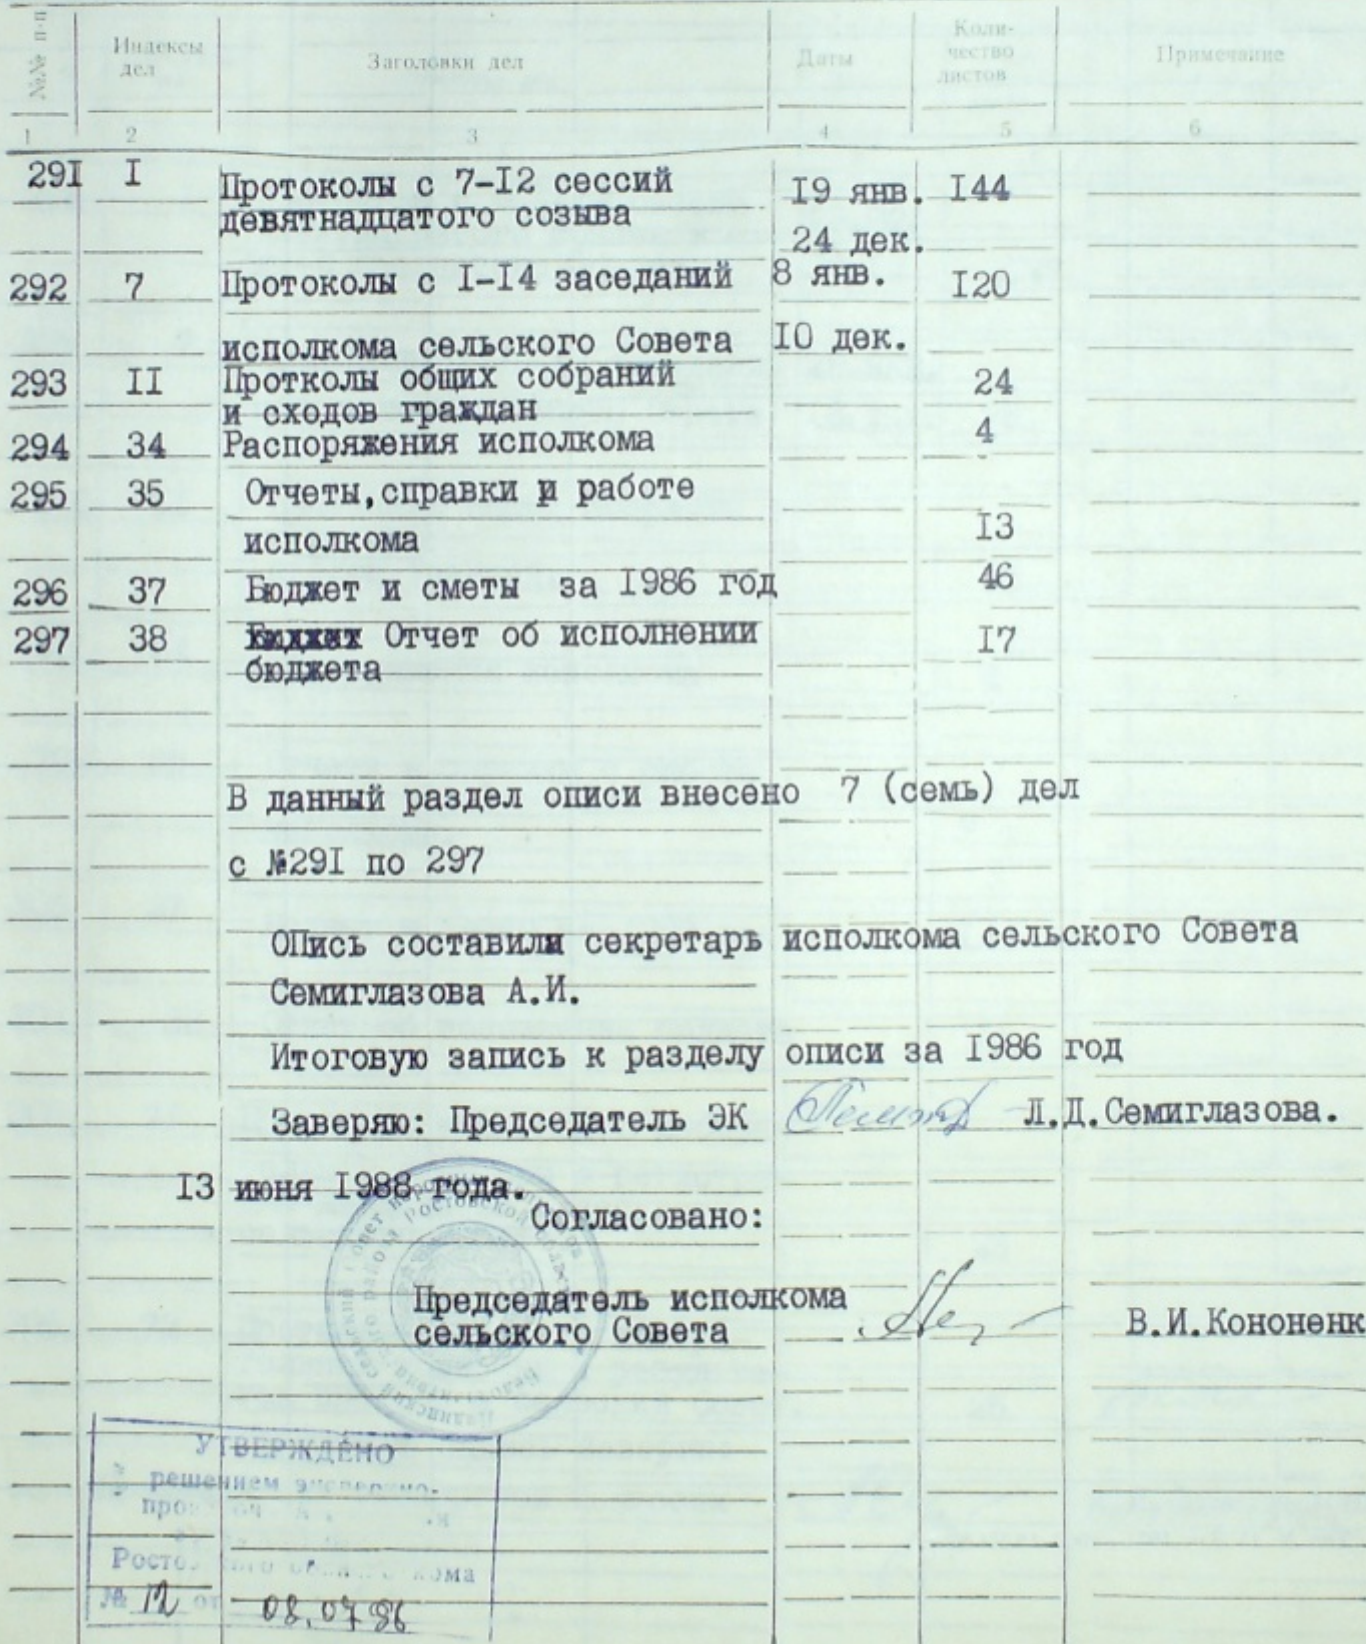 №№ п-п Индексы дел Заголовки дел Даты Коли-чество листов Примечание
1 2 3 4 5 6
291 I Протоколы с 7-I2 сессий I9 янв. I44
девятнадцатого созыва
24 дек.
292 7 Протоколы с I-I4 заседаний 8 янв. I20
исполкома сельского Совета I0 дек.
293 II Протколы общих собраний 24
и сходов граждан
294 34 Распоряжения исполкома 4
295 35 Отчеты,справки и работе
исполкома I3
296 37 Бюджет и сметы за I986 год 46
297 38 Отчет об исполнении I7
бюджета
В данный раздел описи внесено 7 (семь) дел
с №29I по 297
ОПись составила секретарь исполкома сельского Совета
Семиглазова А.И.
Итоговую запись к разделу описи за I986 год
Заверяю: Председатель ЭК Л.Д.Семиглазова.
I3 июня I988 года.
Согласовано:
Председатель исполкома
сельского Совета В.И.Кононенк
УТВЕРЖДЕНО
решением экспертно-
№ 12 от 08.07.86